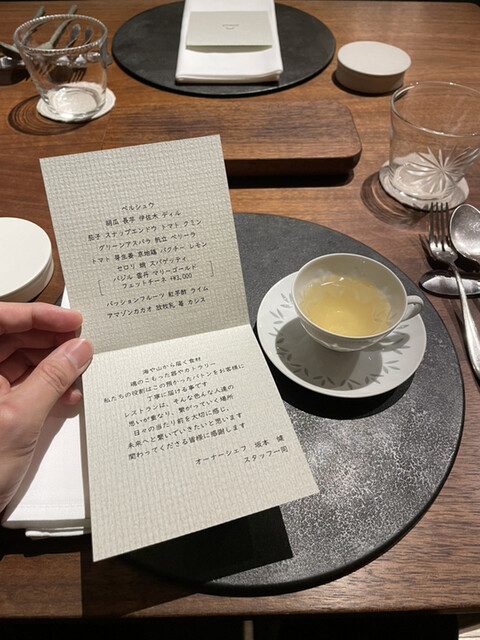 ペルシュウ
胡瓜 長芋 伊佐木 ディル
茄子 スナップエンドウ トマト クミン
グリーンアスパラ 帆立 ベリーラ
トマト 芽生姜 高地鶏 パクチー レモン
セロリ 鯛 スパゲッティ
バジル 雲丹 マリーゴールド
フェットチーネ +¥3,000
パッションフルーツ 紅芋酢 ライム
アマゾンカカオ 放牧乳 苺 カシス
海や山から届く食材
魂のこもった器やカトラリー
私たちの役割はこの預かったバトンをお客様に
丁寧に届ける事です
レストランは、そんな色んな人達の
想いが重なり、繋がっていく場所
日々の当たり前を大切に感じ、
未来へと繋いでいきたいと思います
関わってくださる皆様に感謝します
オーナーシェフ 坂本 健
スタッフ一同